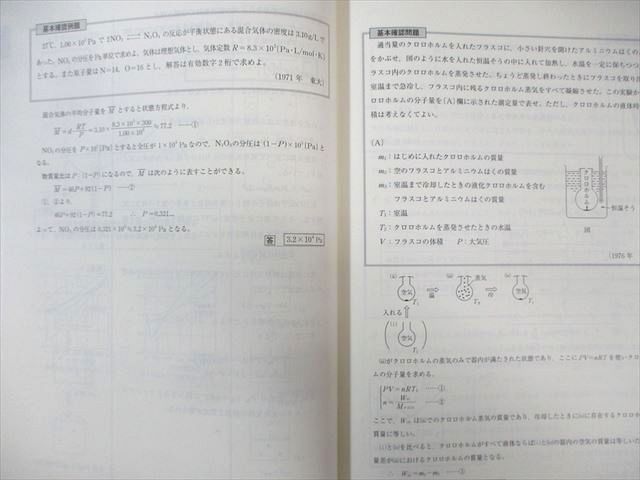 基本確認例題
27℃, 1.00×10⁵Pa で 2NO₂ ⇄ N₂O₄ の反応が平衡状態にある混合気体の密度は 3.10g/L で
あった。NO₂ の分圧を Pa 単位で求めよ。気体は理想気体とし, 気体定数 R=8.3×10³(Pa・L/mol・K)
とする。また原子量は N=14, O=16 とし, 解答は有効数字2桁で求めよ。
(1971年 東大)
混合気体の平均分子量を M̄ とすると状態方程式より,
M̄=d・RT/P=3.10×8.3×10³×300/1.00×10⁵≒77.2 ……①
NO₂ の分圧を P×10⁵[Pa]とすると全圧が 1×10⁵Pa なので, N₂O₄ の分圧は (1−P)×10⁵[Pa]と
なる。
物質量比は P:(1−P) になるので, M̄ は次のように表すことができる。
M̄=46P+92(1−P) ……②
①, ②より,
46P+92(1−P)=77.2 ∴ P=0.321…
よって, NO₂ の分圧は 0.321×10⁵≒3.2×10⁴Pa となる。
答 3.2×10⁴Pa
基本確認問題
適当量のクロロホルムを入れたフラスコに, 小さい針穴を開けたアルミニウムはくの
をかぶせ, 図のように水を入れた恒温そうの中に入れて加熱し, 水温を一定に保ちつつ
ラスコ内のクロロホルムを蒸発させた。ちょうど蒸発し終わったときにフラスコを取り
室温まで急冷し, フラスコ内に残るクロロホルム蒸気をすべて凝縮させた。この実験か
ロロホルムの分子量を〔A〕欄に示された測定量で表せ。ただし, クロロホルムの液体
積は考えなくてよい。
〔A〕
m₁:はじめに入れたクロロホルムの質量
m₂:空のフラスコとアルミニウムはくの質量
m₃:室温まで冷却したときの液化クロロホルムを含む
フラスコとアルミニウムはくの質量
T₁:室温
T₂:クロロホルムを蒸発させたときの水温
V:フラスコの体積 P:大気圧
クロロホルム
恒温そう
図
(1976年
蒸気
空気
T₁
温
T₂
冷
空気
T₁
入れる
空気
T₁
(ⅲ)がクロロホルムの蒸気のみで器内が満たされた状態であり, ここに PV=nRT を使いクロ
ムの分子量を求める。
PV=nRT₂ ……①
ここで, は(ⅲ)でのクロロホルム蒸気の質量であり, 冷却したときに(ⅳ)に存在するクロロホ
質量に等しい。
(ⅰ)と(ⅳ)を比べると, クロロホルムがすべて液体ならば(ⅰ)と(ⅳ)の器内の空気の質量は等しい
量差が(ⅲ)におけるクロロホルムの質量となる。